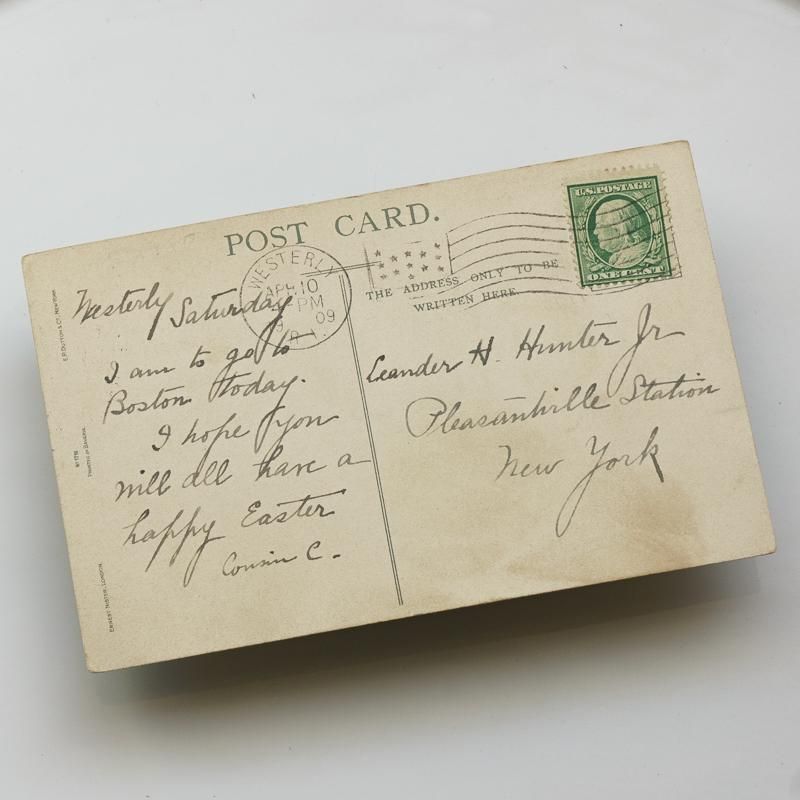 POST CARD.
U.S. POSTAGE
ONE CENT
WESTERLY
APR 10
PM
09
R.I.
THE ADDRESS ONLY TO BE
WRITTEN HERE.
Westerly Saturday
I am to go to
Boston today.
I hope you
will all have a
happy Easter
Cousin C.
Leander H. Hunter Jr
Pleasantville Station
New York
E.P. DUTTON & CO. NEW YORK
PRINTED IN BAVARIA
ERNEST NISTER, LONDON